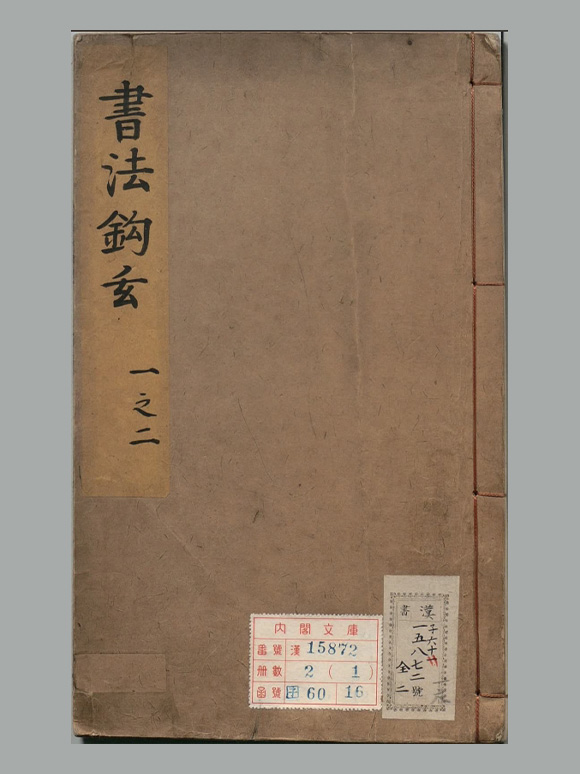 書法鈎玄
一之二
内閣文庫
番號 漢 15872
冊數 2 (1)
函號 子 60 16
漢書
子六十
一五八七二號
全二